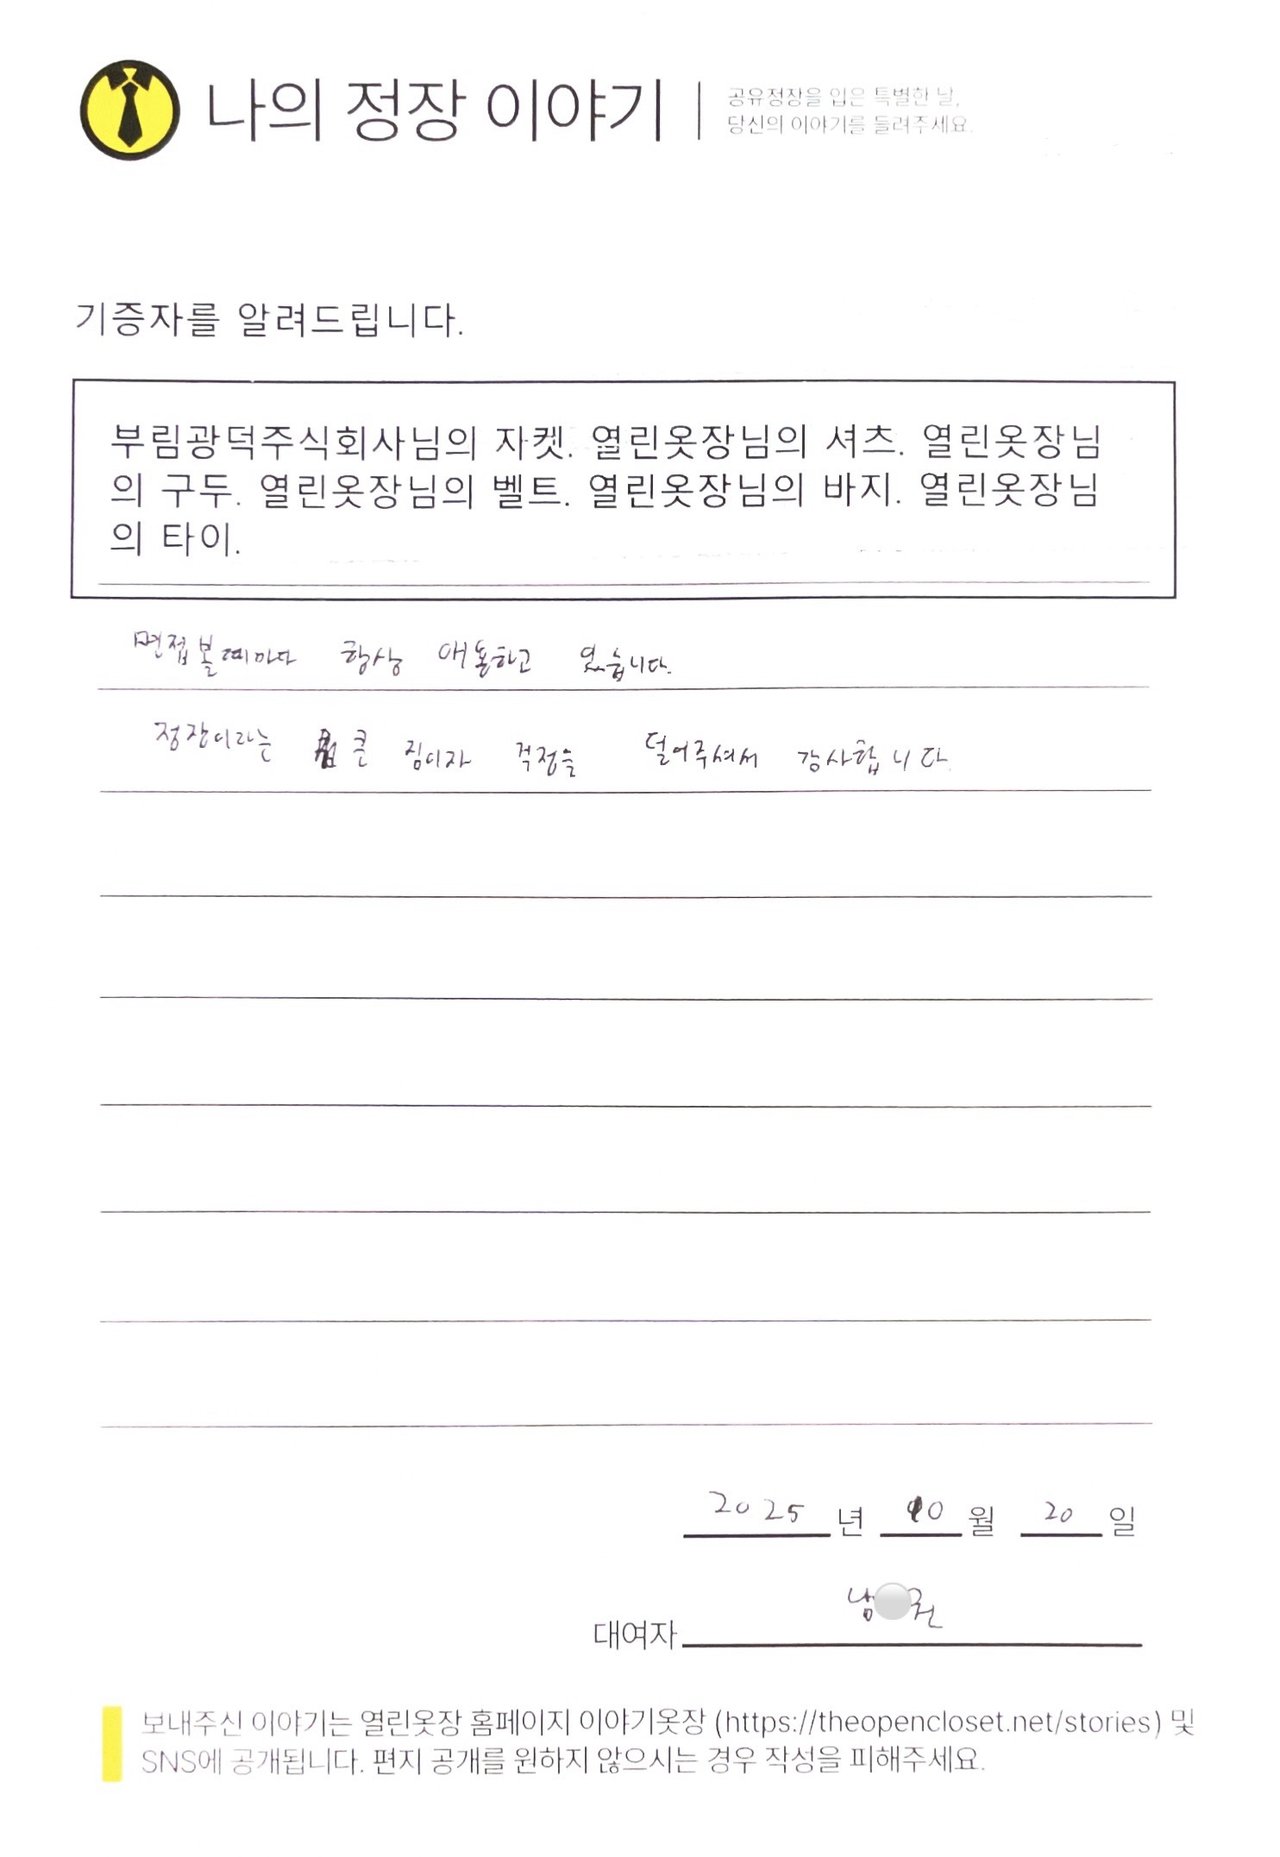 나의 정장 이야기
공유정장을 입은 특별한 날,
당신의 이야기를 들려주세요.
기증자를 알려드립니다.
부림광덕주식회사님의 자켓. 열린옷장님의 셔츠. 열린옷장님
의 구두. 열린옷장님의 벨트. 열린옷장님의 바지. 열린옷장님
의 타이.
면접볼때마다 항상 애용하고 있습니다.
정장이라는 큰 짐이자 걱정을 덜어주셔서 감사합니다
2025 년 10 월 20 일
대여자 남 권
보내주신 이야기는 열린옷장 홈페이지 이야기옷장 (https://theopencloset.net/stories) 및
SNS에 공개됩니다. 편지 공개를 원하지 않으시는 경우 작성을 피해주세요.